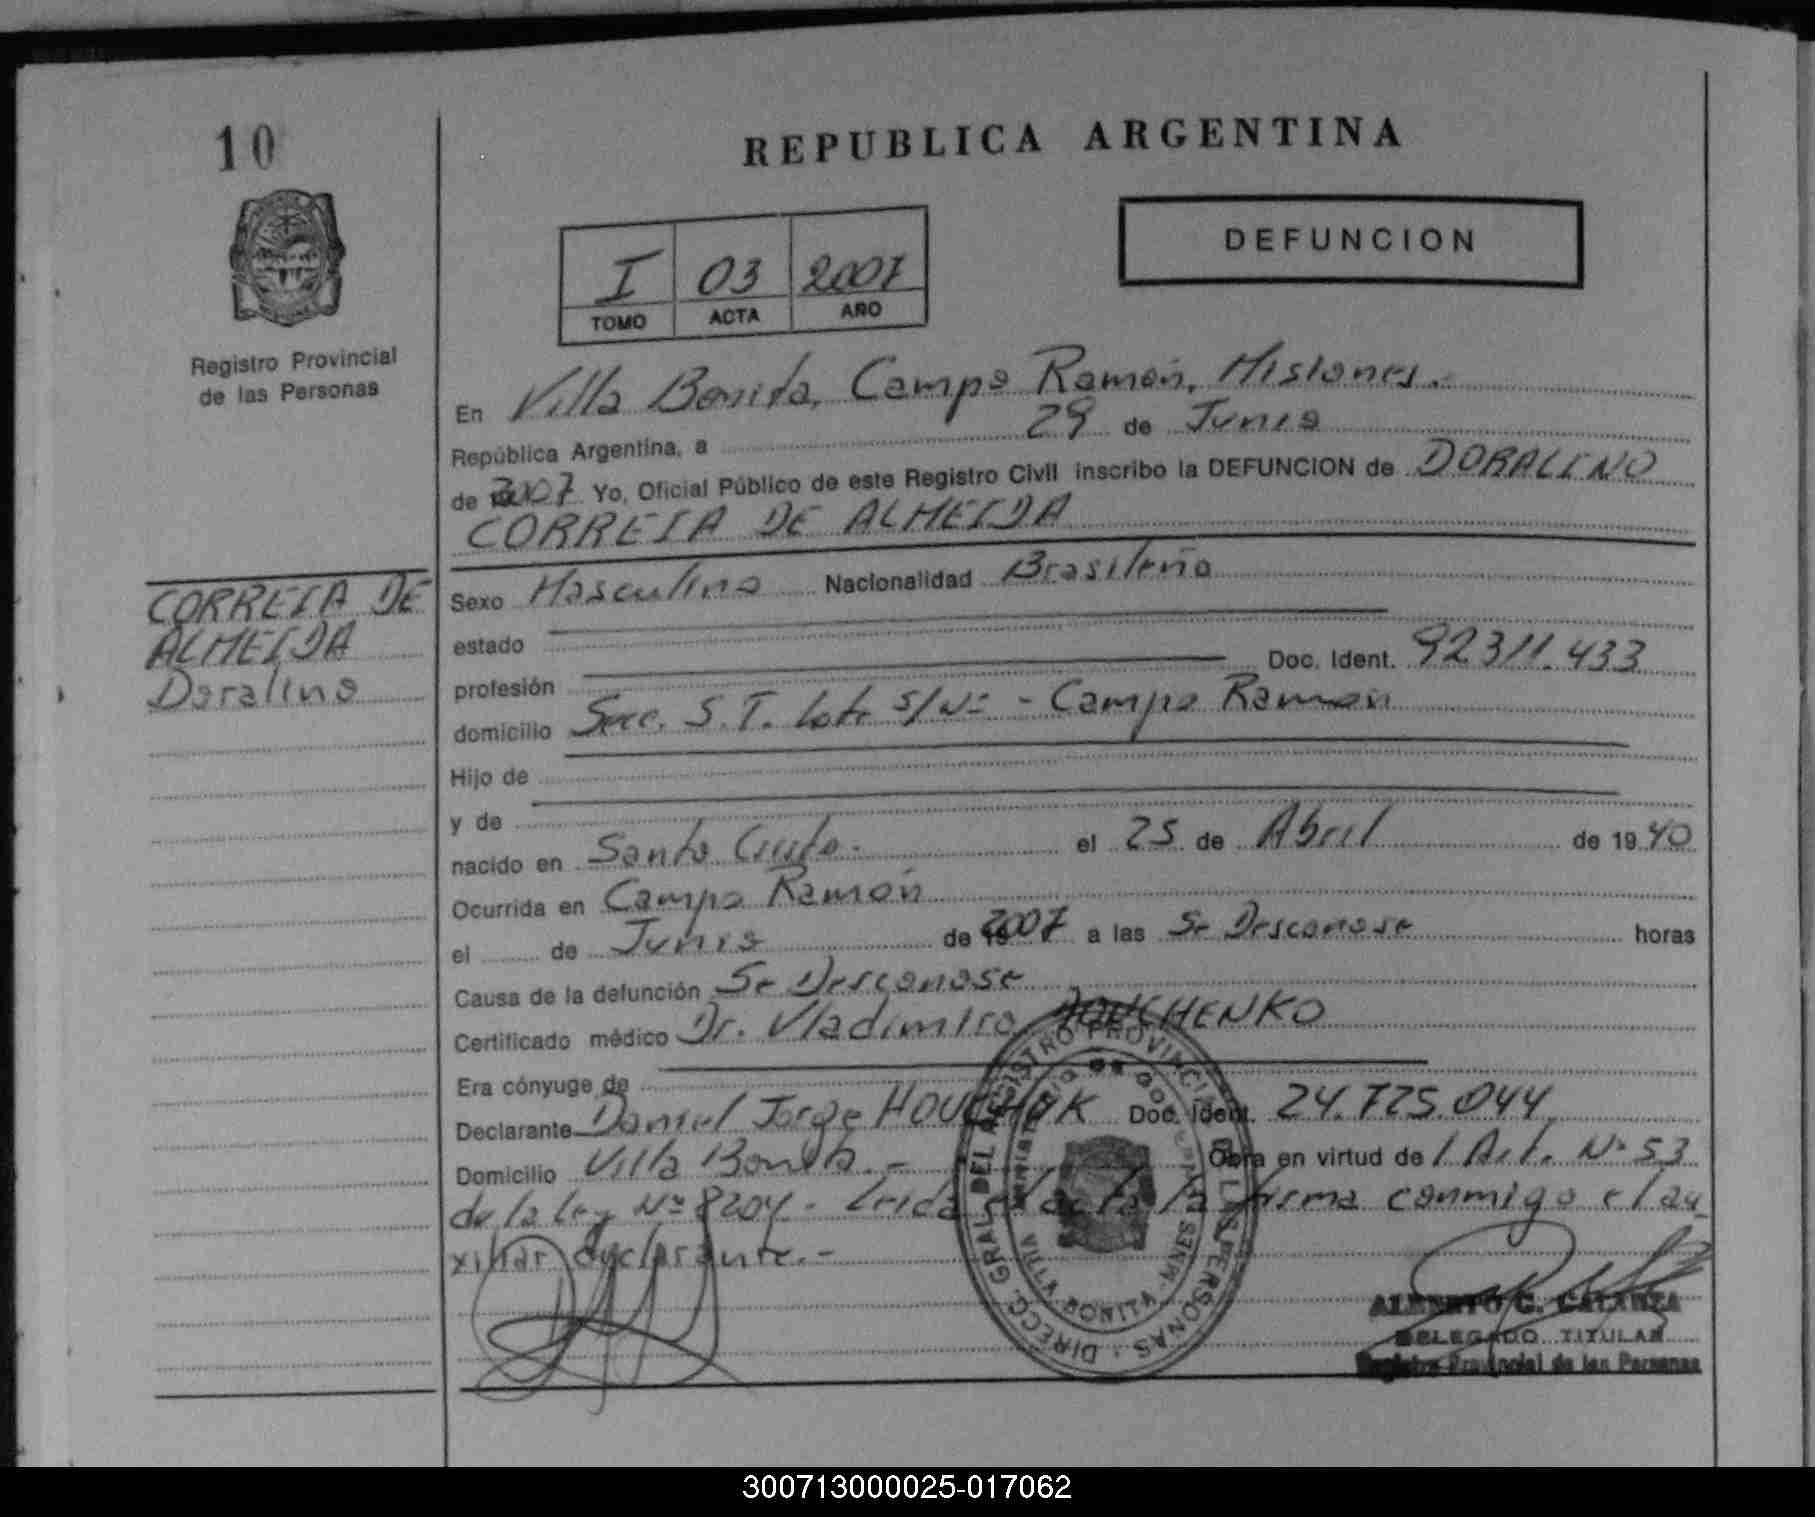 10
REPUBLICA ARGENTINA
DEFUNCION
I 03 2007
TOMO ACTA AÑO
Registro Provincial
de las Personas
En Villa Bonita, Campo Ramón, Misiones.
República Argentina, a 29 de Junio
de 2007 Yo, Oficial Público de este Registro Civil inscribo la DEFUNCION de DORALINO
CORREIA DE ALMEIDA
CORREIA DE
ALMEIDA
Doralino
Sexo Masculino Nacionalidad Brasileño
estado
profesión Doc. Ident. 92311.433
domicilio Secc. S.T. Lote S/Nº - Campo Ramón
Hijo de
y de
nacido en Santo Cristo. el 25 de Abril de 1940
Ocurrida en Campo Ramón
el de Junio de 2007 a las Se Desconose horas
Causa de la defunción Se Desconose
Certificado médico Dr. Vladimiro
Era cónyuge de
Declarante Daniel Jorge Doc. Ident. 24.725.044
Domicilio Villa Bonita.- Obra en virtud de l Art. Nº 53
de la ley Nº 8204.- Leida el acta la firma conmigo el au
xiliar declarante.-
DIRECC. GRAL. DEL REGISTRO PROVINCIAL DE LAS PERSONAS
MINISTERIO DE GOBIERNO
VILLA BONITA - MNES
ALBERTO G.
DELEGADO TITULAR
Registro Provincial de las Personas
300713000025-017062